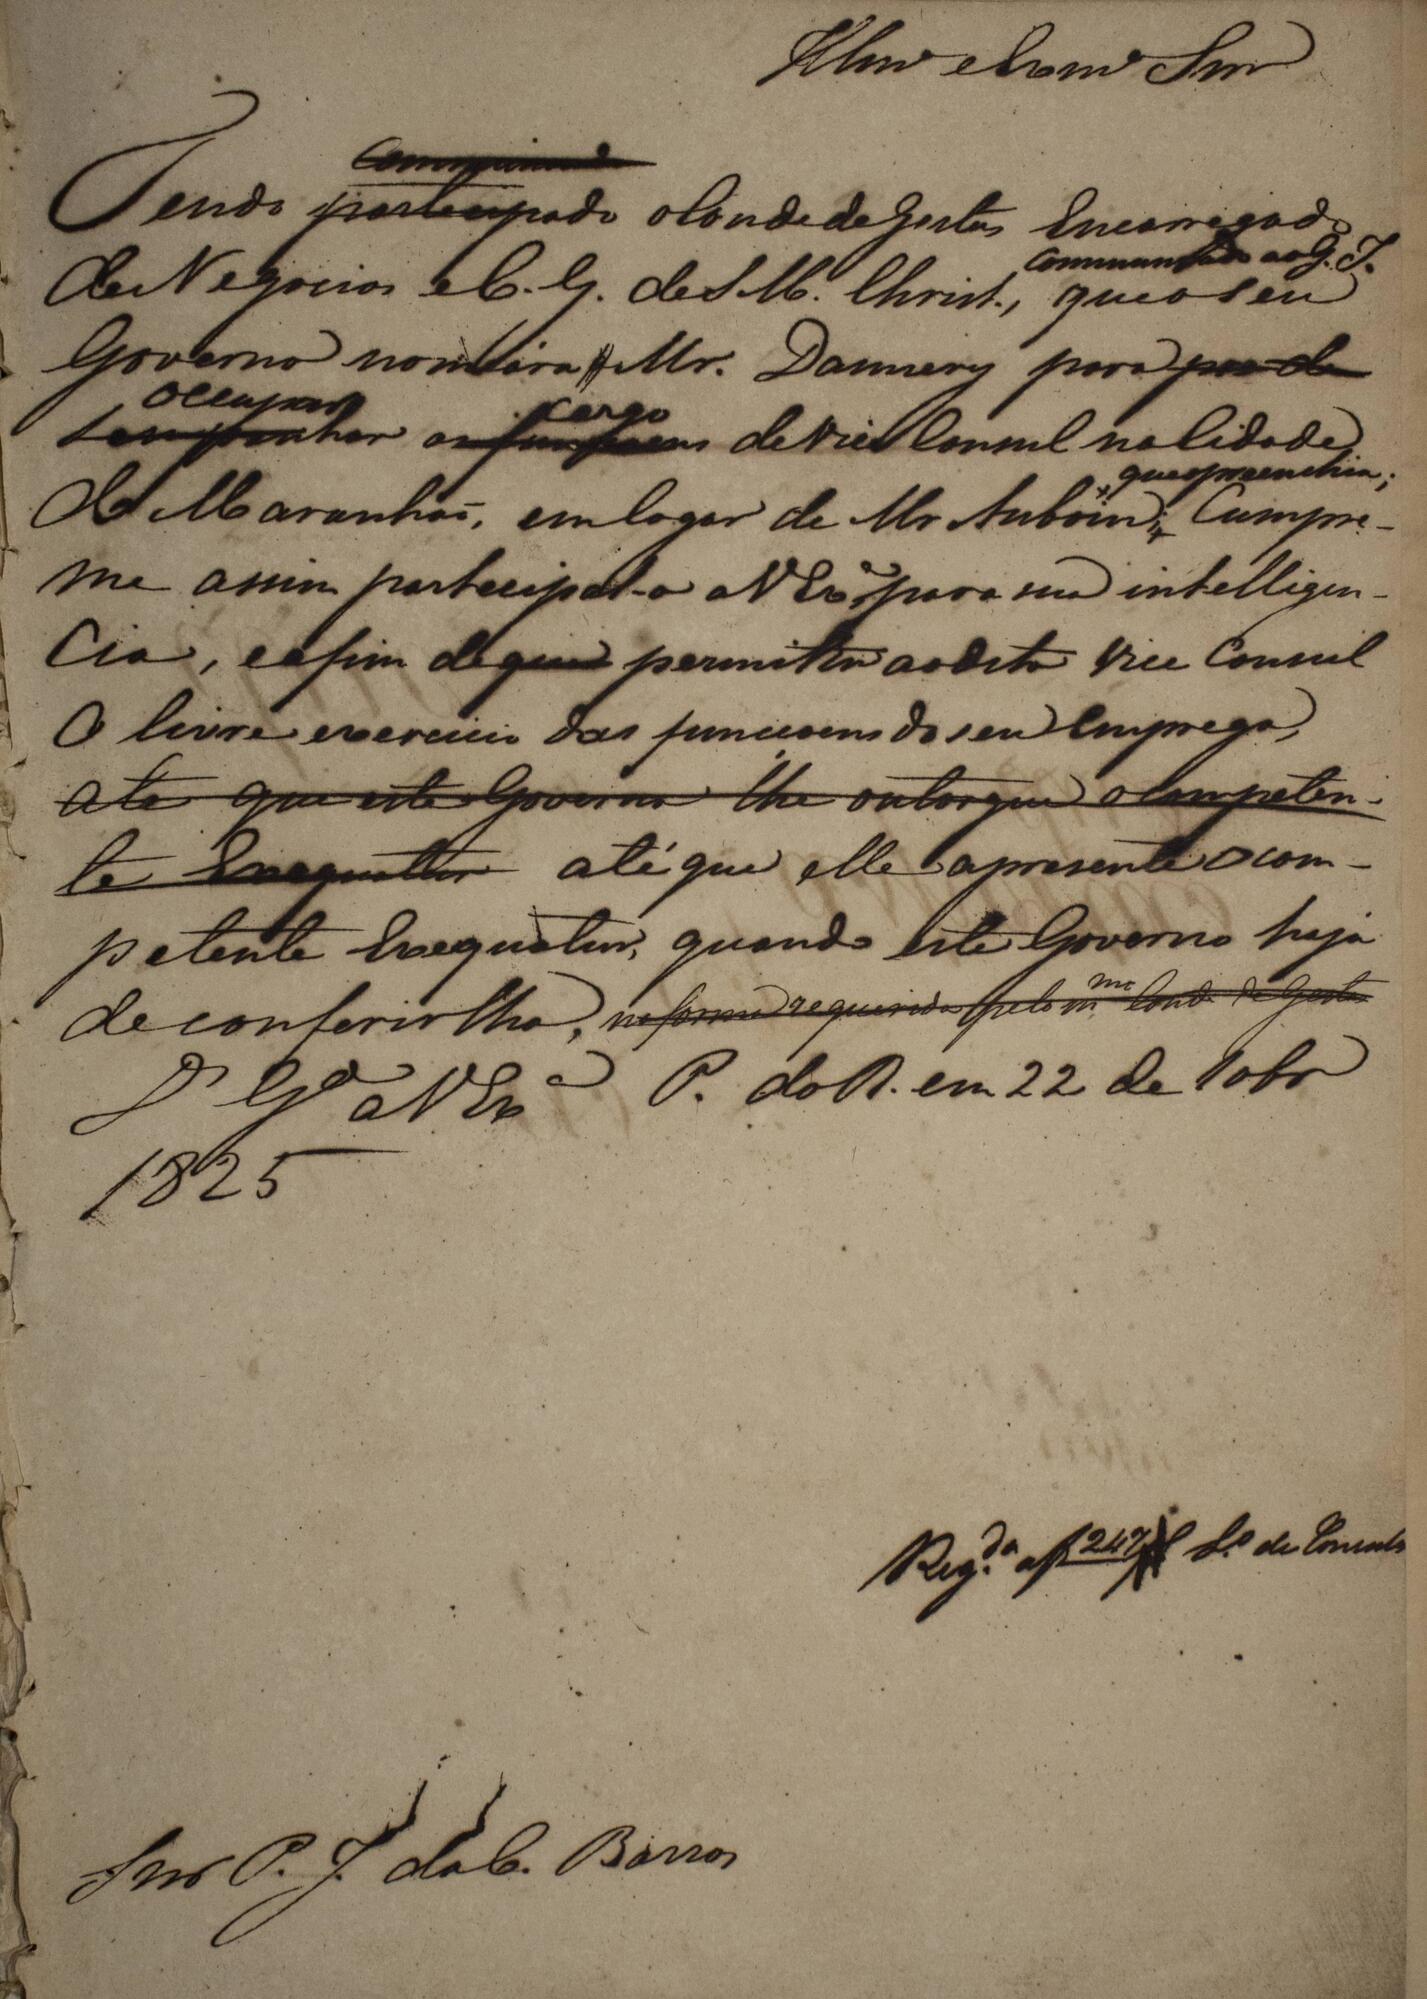 Illmo e Exmo Snr
Communicado
Tendo participado o Conde de Gestas Encarregado
communicado ao G. I.
de Negocios e C. G. de S. M. Christ., que o seu
Governo nomeára Mr. Dannery para para de
occupar cargo
sempenhar as funcçoens de Vice Consul na Cidade
que o preenchia;
do Maranhão, em logar de Mr Auboin; Cumpre-
me assim participal-o a V Exa para sua intelligen-
cia, e a fim de que permitta ao dito Vice Consul
o livre exercicio das funcçoens do seu Emprego,
até que este Governo lhe outorgue o competen-
te Exequatur até que elle apresente o com-
petente Exequatur, quando este Governo haja
de conferir-lho, na forma requerida pelo mmo Conde de Gestas
Ds Gde a V Exa P. do R. em 22 de 10bro
1825
Regda a f 247 L.o de Consules
Snr P. J. da C. Barros